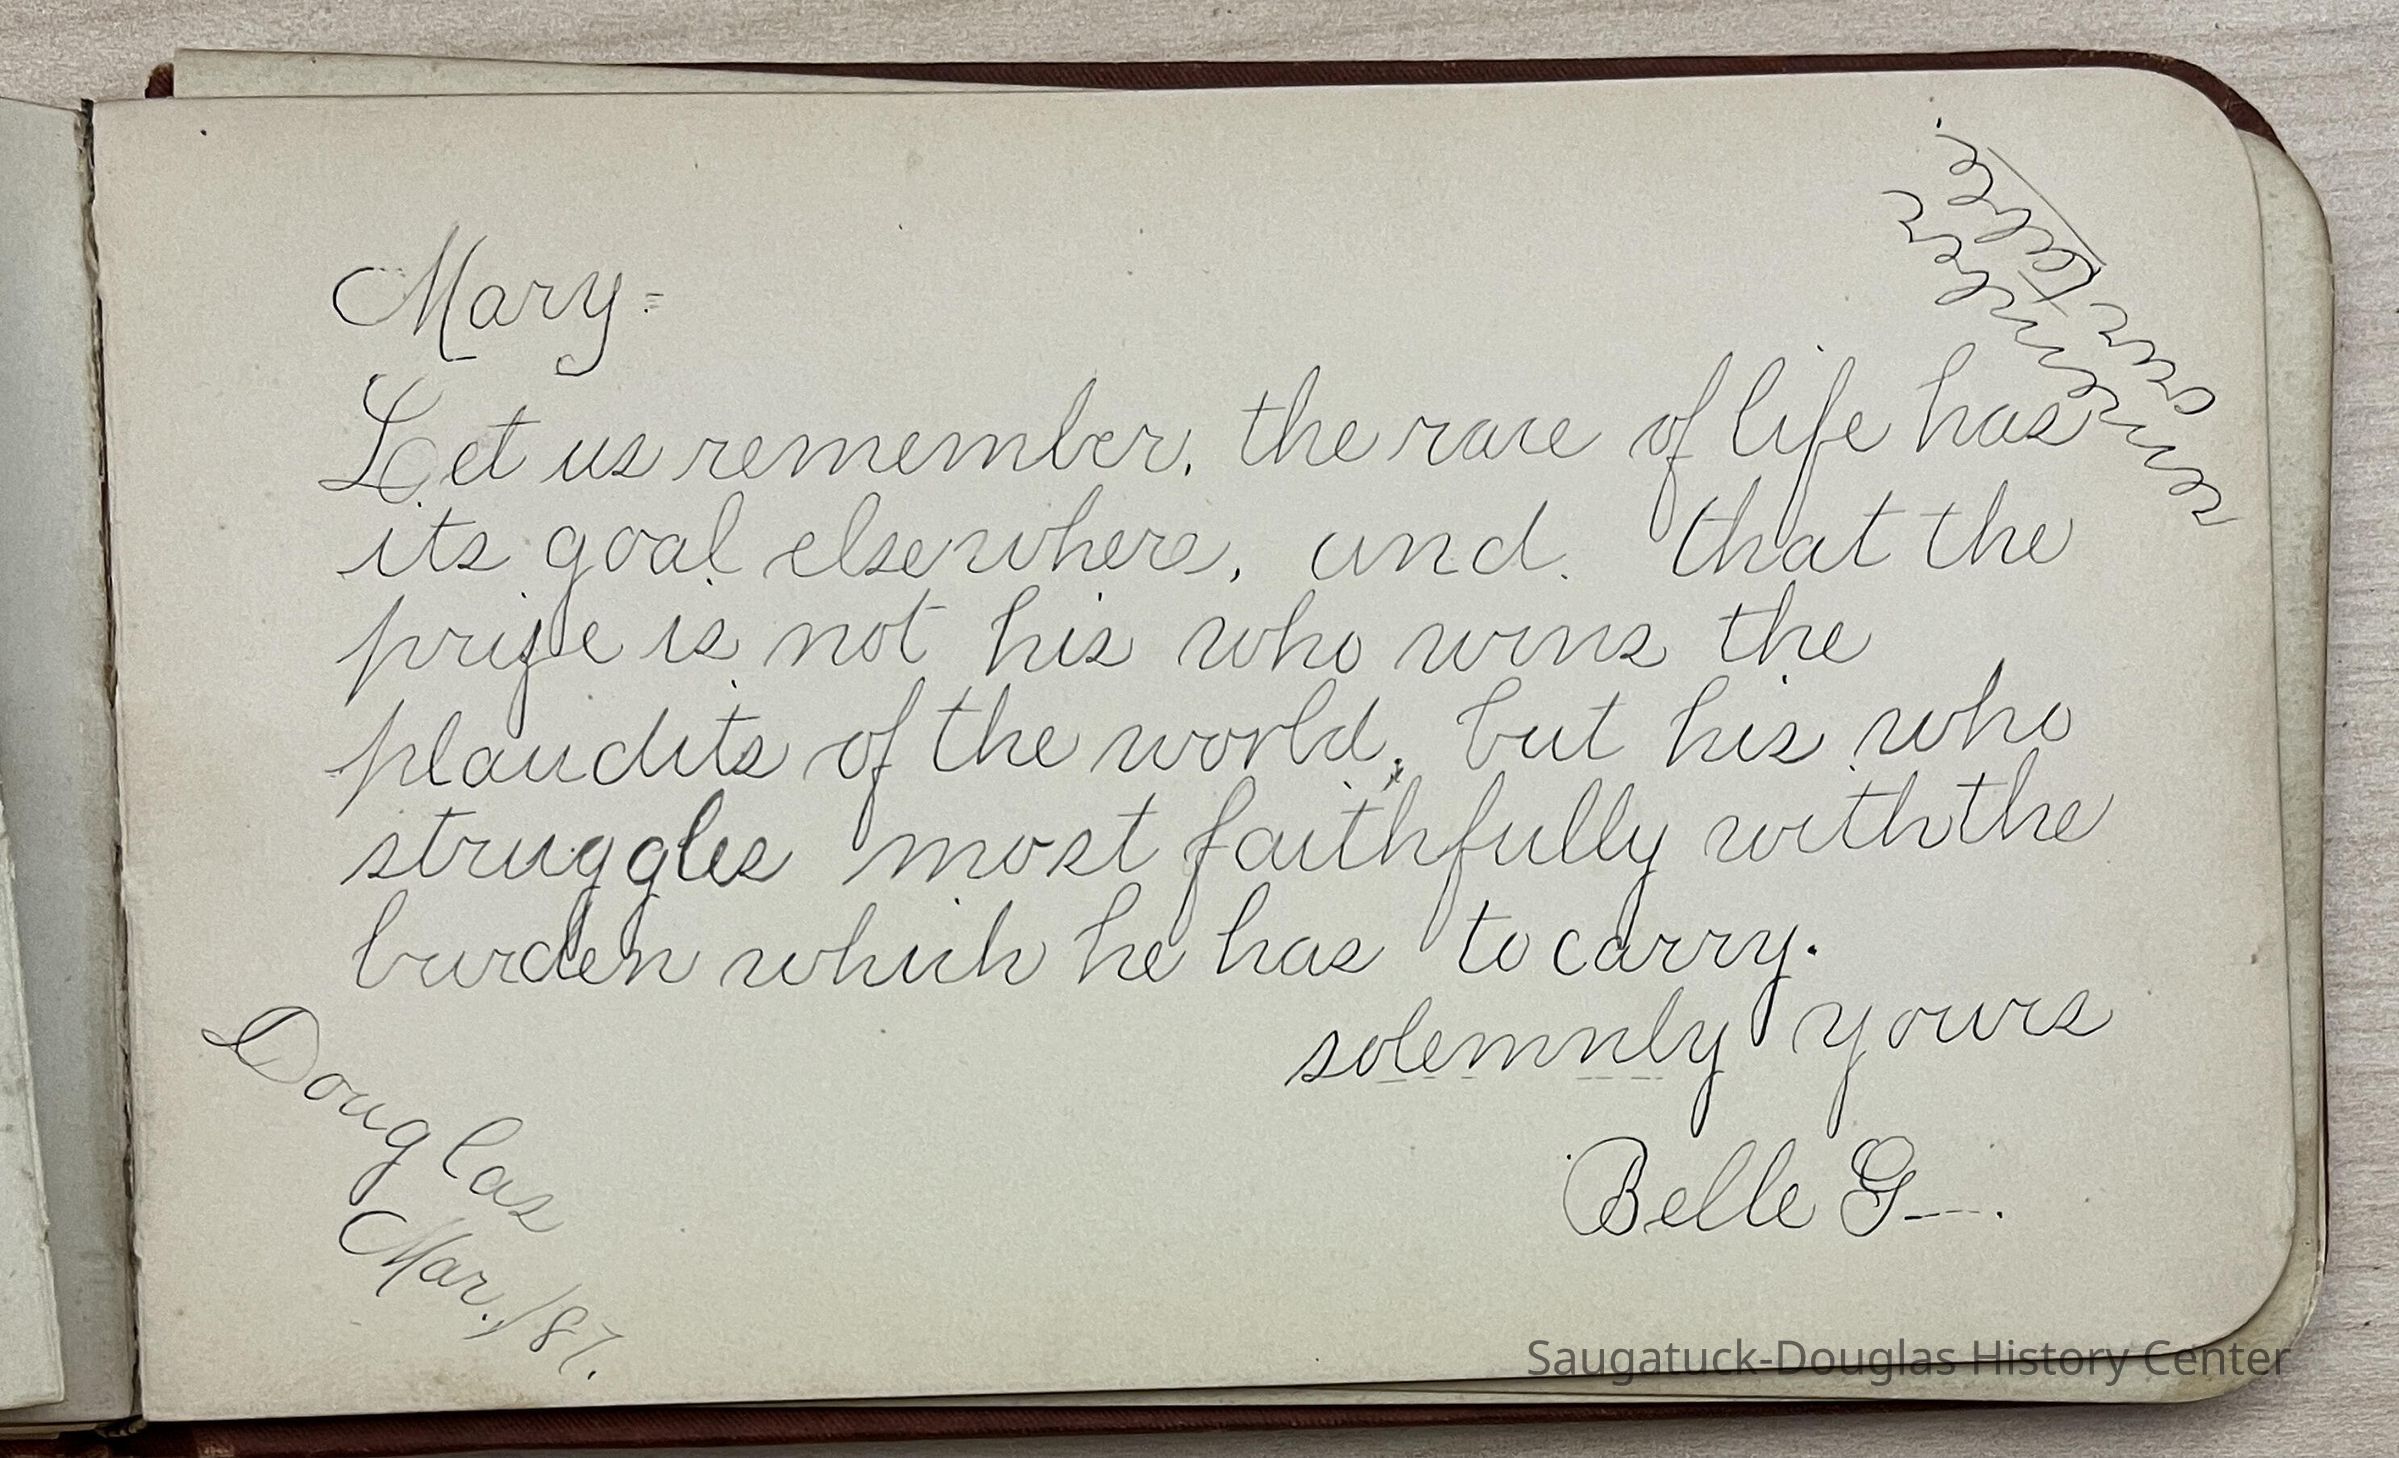 remember
our
Mary =
Let us remember, the race of life has
its goal elsewhere, and. that the
prize is not his who wins the
plaudits of the world, but his who
struggles most faithfully with the
burden which he has to carry.
solemnly yours
Belle G---.
Douglas
Mar. /87.
Saugatuck-Douglas History Center